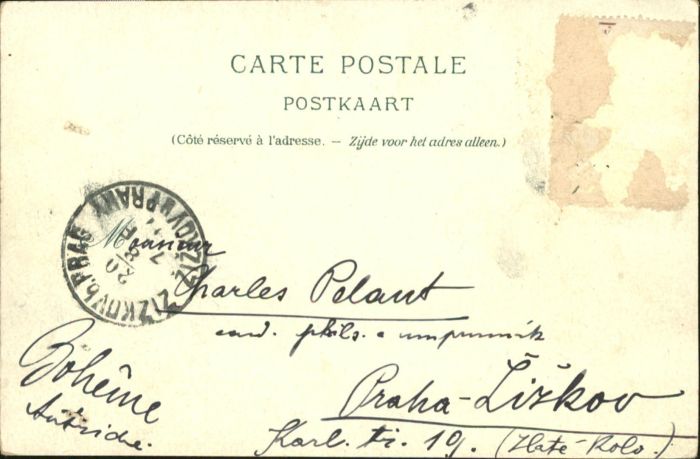 CARTE POSTALE
POSTKAART
(Côté réservé à l'adresse. — Zijde voor het adres alleen.)
ŽIŽKOV b. PRAG ŽIŽKOV u PRAHY
20
8
7
Monsieur
Charles Pelant
cand. phils. a umprumník
Praha-Žižkov
Karl. tř. 19. (Zlaté-Kolo.)
Bohême
Autriche